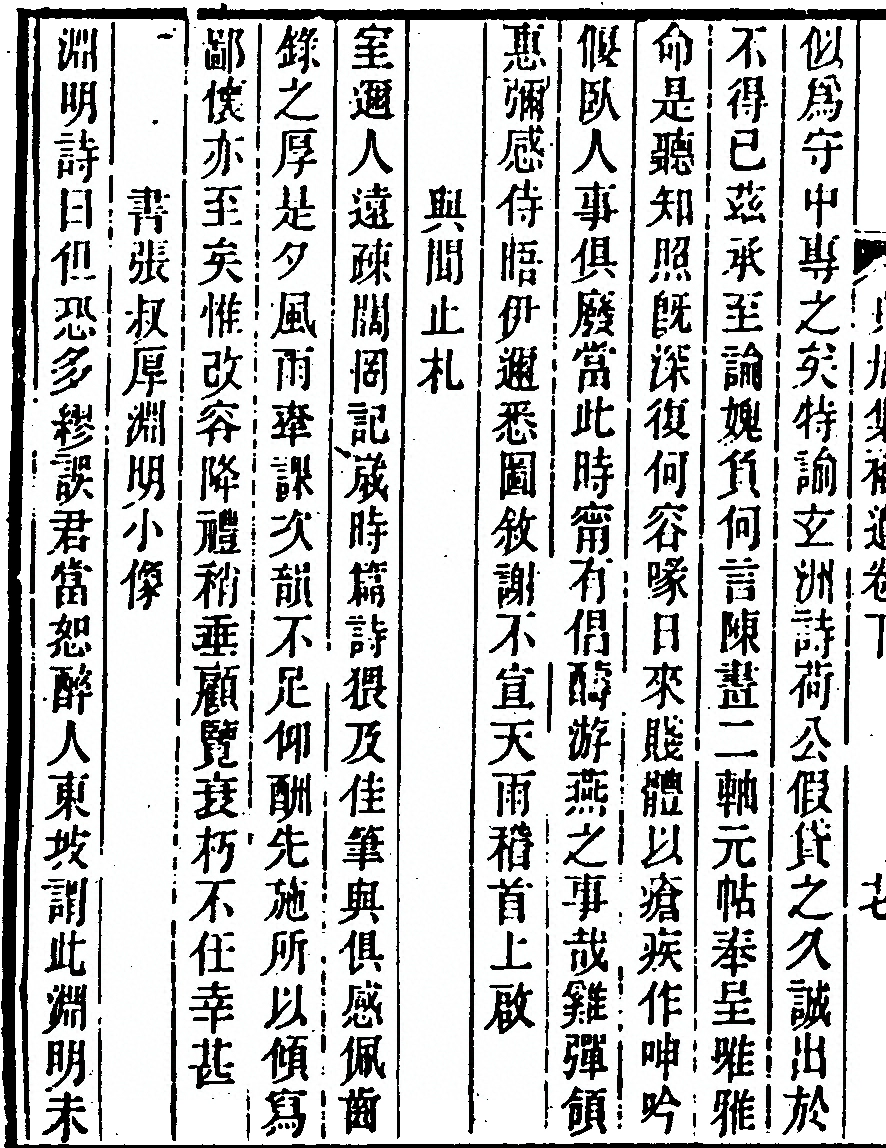 貞居集補遺卷下
七
似爲守中專之矣特諭玄洲詩荷公假貸之久誠出於
不得已茲承至諭媿負何言陳畫二軸元帖奉呈唯雅
命是聽知照旣深復何容喙日來賤體以瘡疾作呻吟
偃臥人事俱廢當此時甯有侶醻游燕之事哉雞彈領
惠彌感侍晤伊邇悉圖敘謝不宣天雨稽首上啟
與聞止札
室邇人遠疎闊罔記歲時篇詩猥及佳筆與俱感佩齒
錄之厚是夕風雨牽課次韻不足仰酬先施所以傾寫
鄙懷亦至矣惟改容降禮稍垂顧覽衰朽不任幸甚
書張叔厚淵明小像
淵明詩曰但恐多繆誤君當恕醉人東坡謂此淵明未